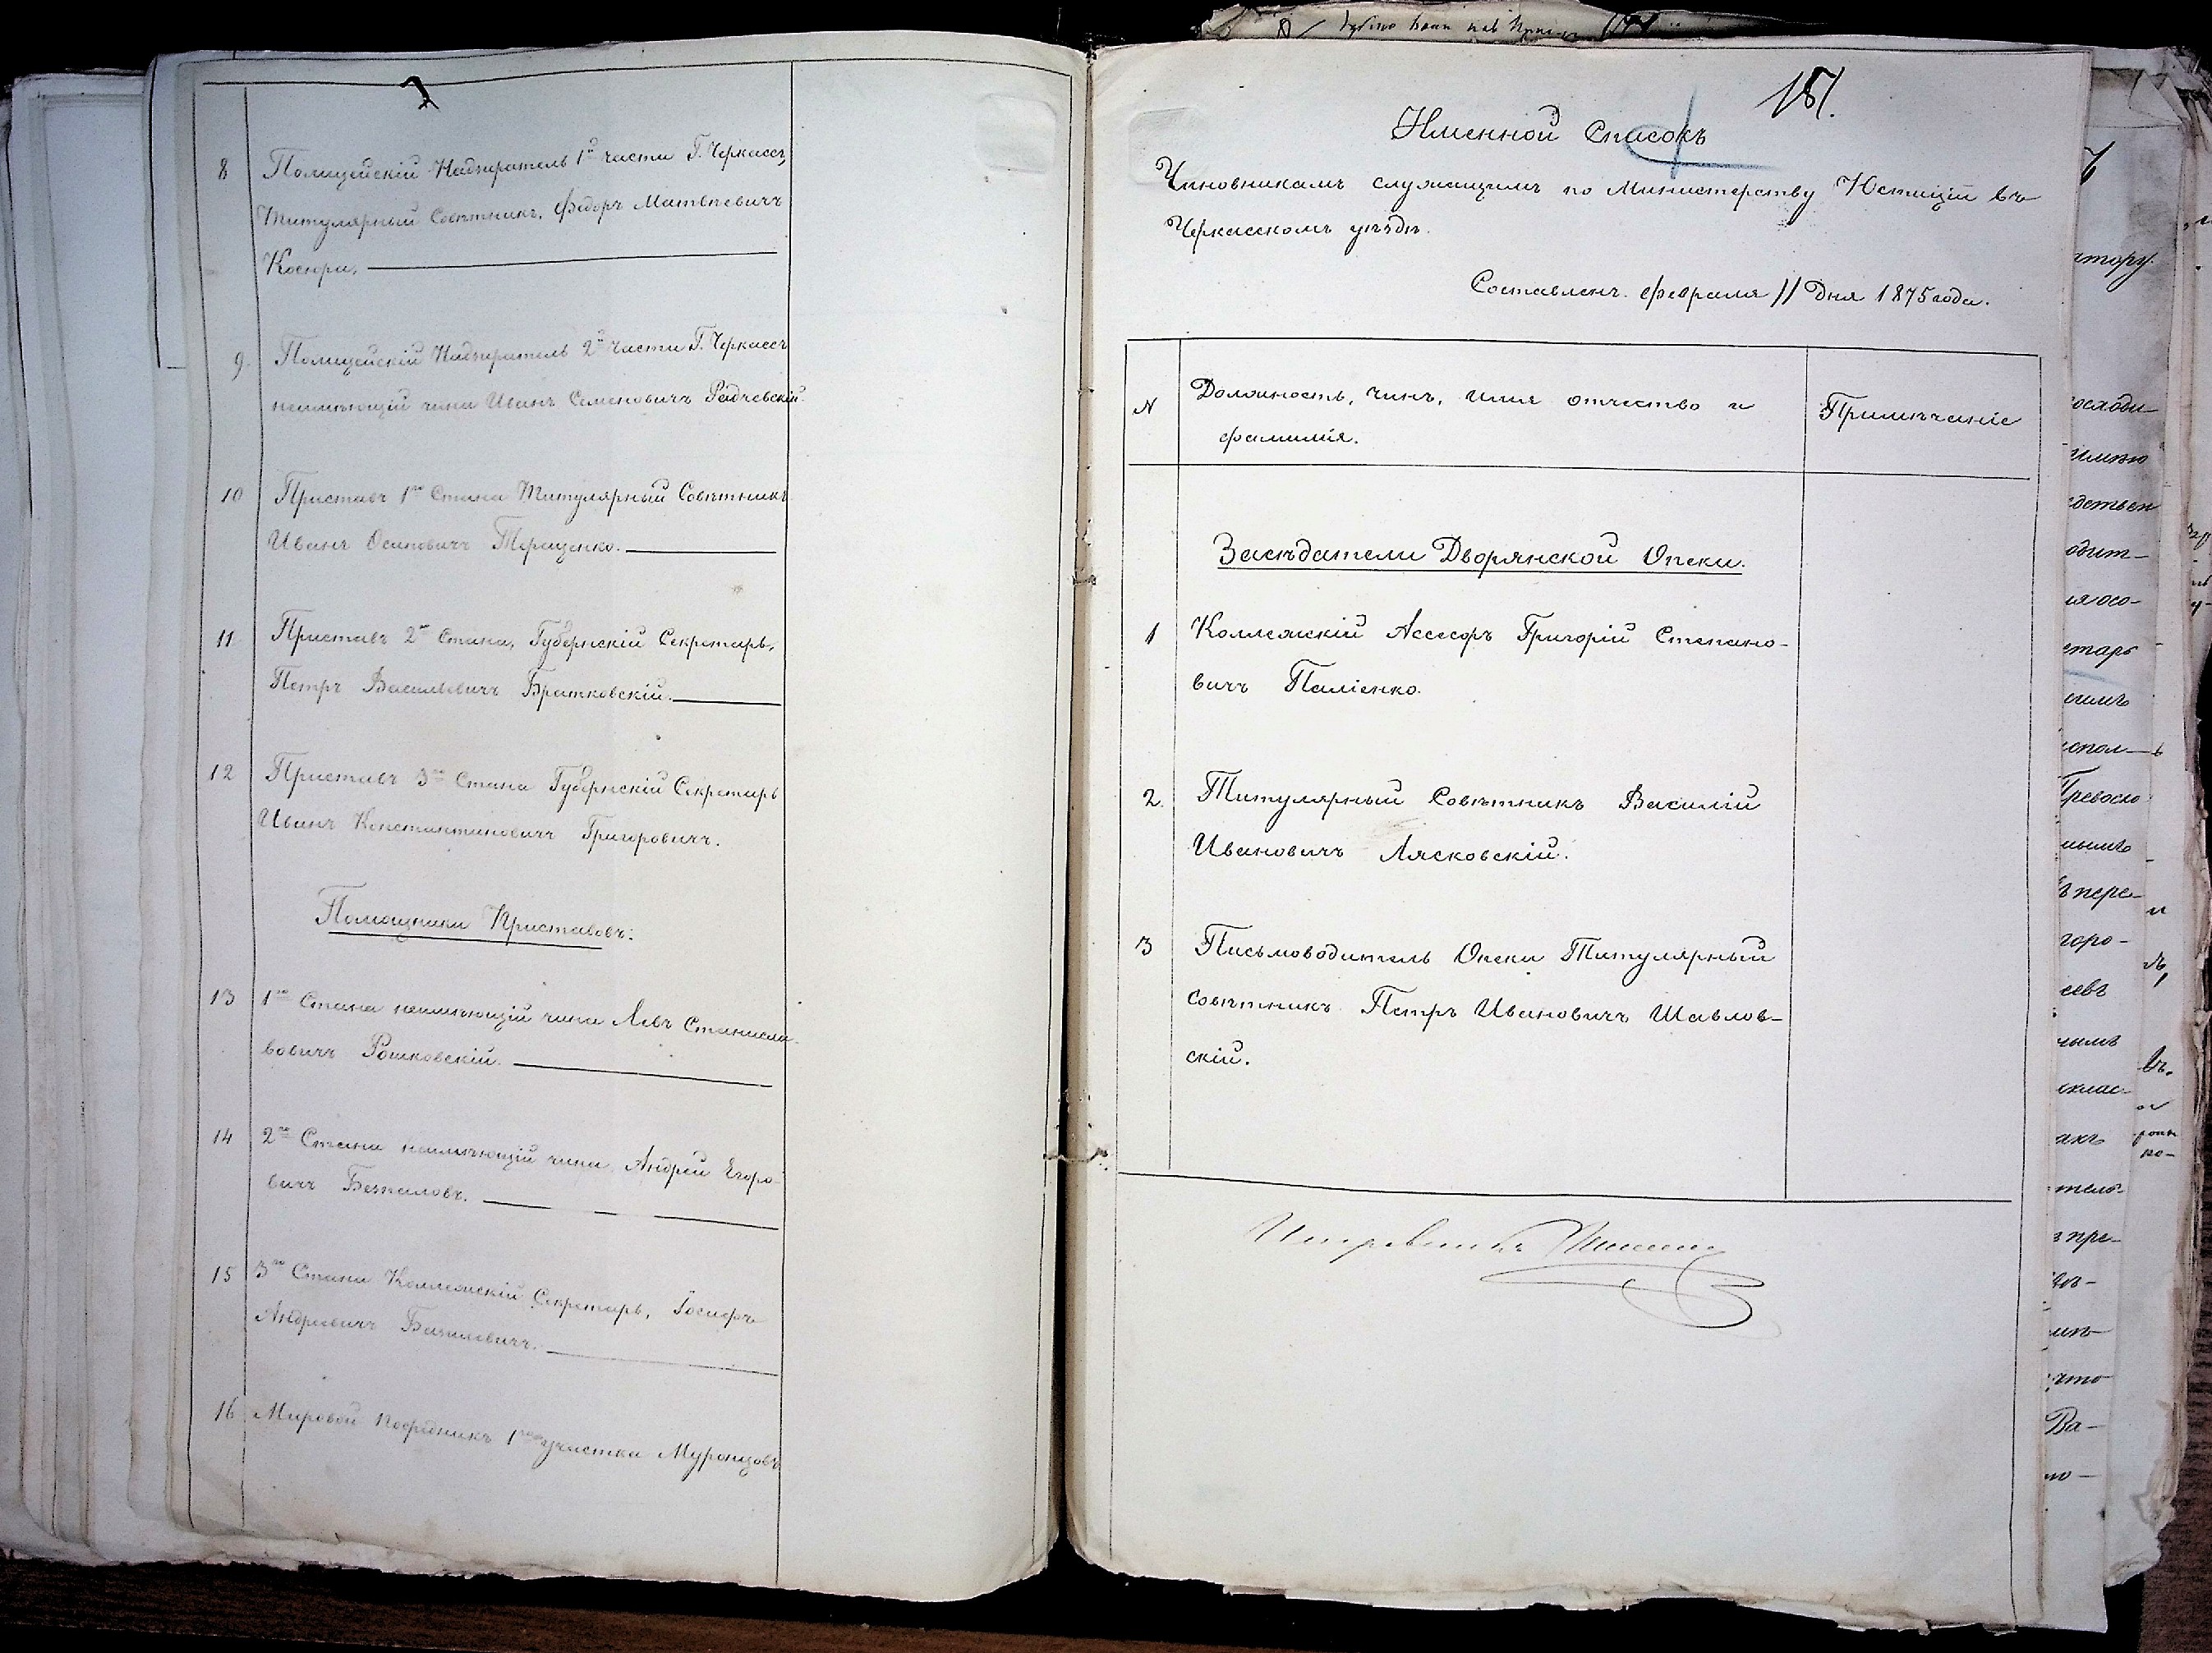 8 Полицейскій Надзиратель 1й части Г. Черкассъ,
Титулярный Совѣтникъ, Федоръ Матвѣевичъ
9. Полицейскій Надзиратель 2й части Г. Черкассъ
неимѣющій чина Иванъ Семеновичъ Радчевскій.
10 Приставъ 1го Стана Титулярный Совѣтникъ
Иванъ Осиповичъ Терещенко.
11 Приставъ 2го Стана, Губернскій Секретарь,
Петръ Васильевичъ Братковскій.
12 Приставъ 3го Стана Губернскій Секретарь
Иванъ Константиновичъ Григоровичъ.
Помощники Приставовъ:
13 1го Стана неимѣющій чина Левъ Станисла-
вовичъ Рошковскій.
14 2го Стана неимѣющій чина, Андрей Егоро-
вичъ
15 3го Стана Коллежскій Секретарь, Іосифъ
Андреевичъ
16 Мировой Посредникъ 1го участка Муромцовъ
151.
Именной Списокъ
Чиновникамъ служащимъ по Министерству Юстиціи въ
Черкасскомъ уѣздѣ.
Составленъ. февраля 11 дня 1875 года.
N Должность, чинъ, имя отчество и
фамилія.
Примѣчаніе
Засѣдатели Дворянской Опеки.
1 Коллежскій Асесоръ Григорій Степано-
вичъ Паліенко.
2. Титулярный Совѣтникъ Василій
Ивановичъ Лясковскій.
3 Письмоводитель Опеки Титулярный
Совѣтникъ Петръ Ивановичъ Шавлов-
скій.
Исправникъ